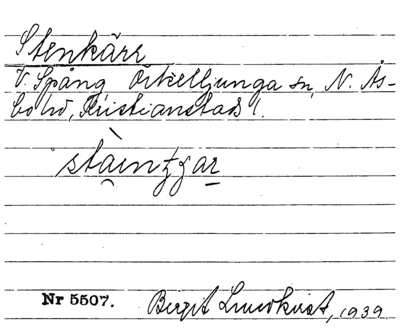 Stenkärr
V. Spång Örkelljunga sn, N. Ås-
bo hd, Kristianstads l.
Nr 5507. Bergit Lundkvist, 1939